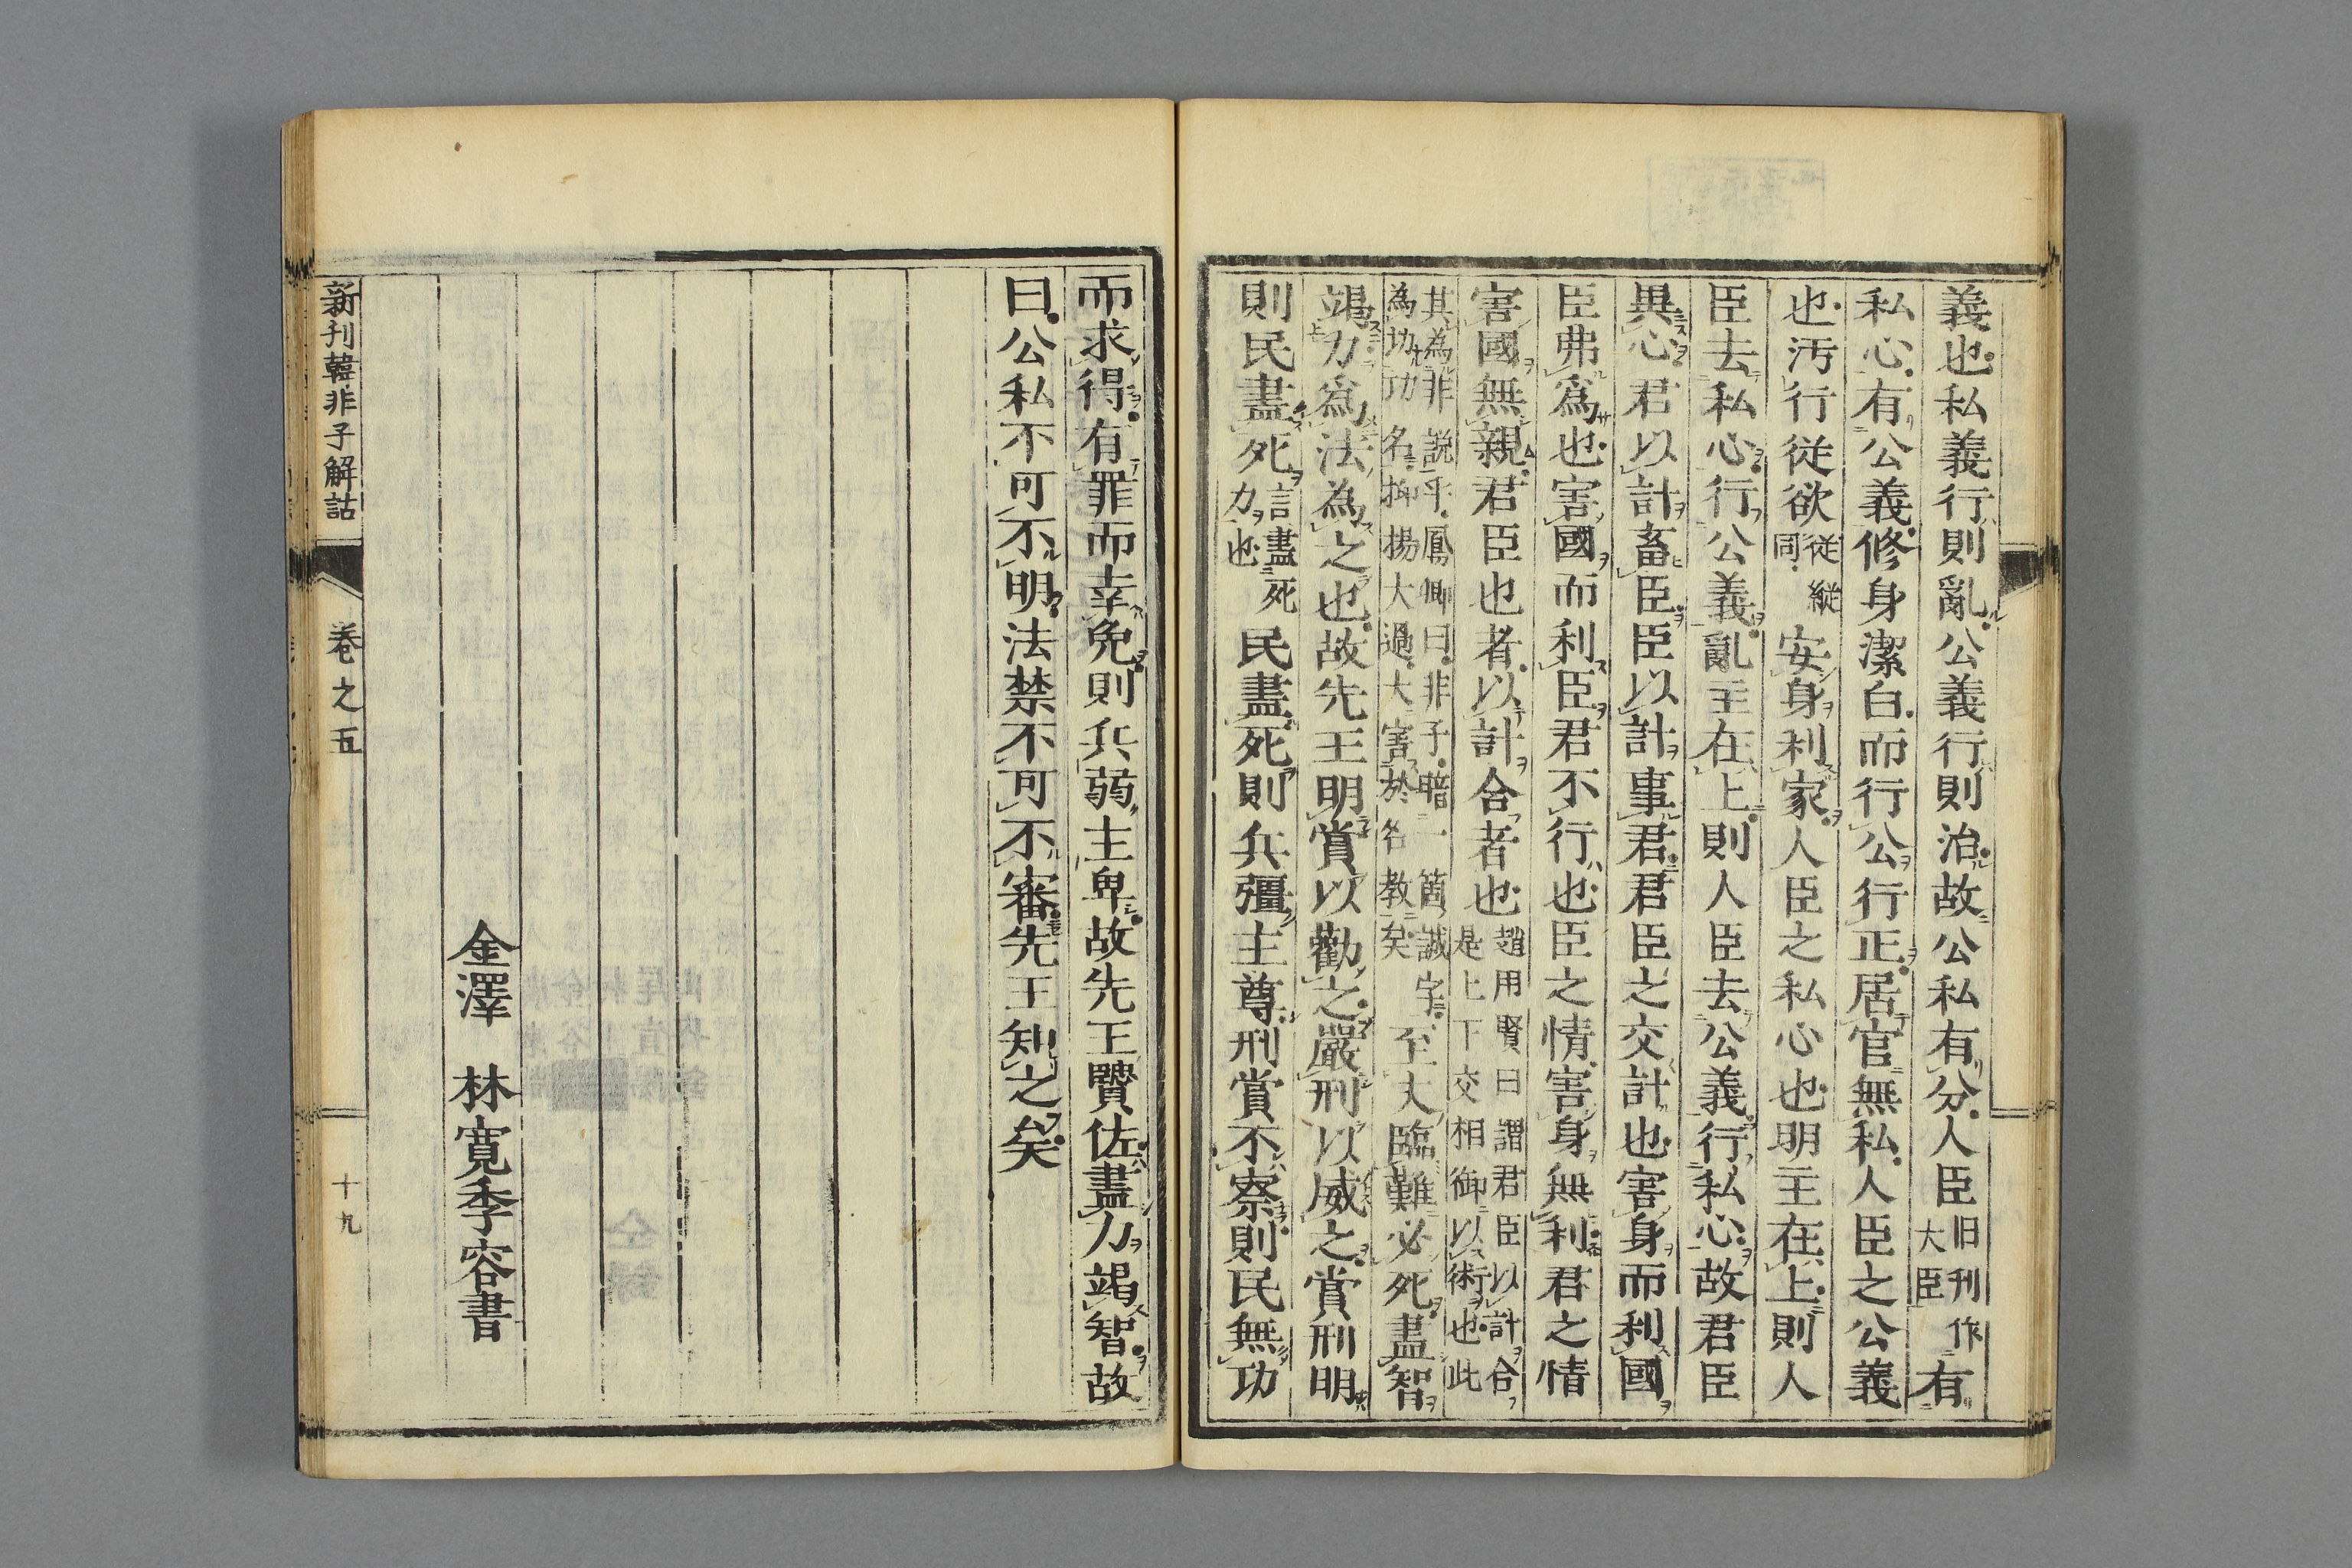 義也私義行則亂公義行則治故公私有分人臣旧刊作大臣有
私心有公義修身潔白而行公行正居官無私人臣之公義
也汚行従欲従縦同安身利家人臣之私心也明主在上則人
臣去私心行公義亂主在上則人臣去公義行私心故君臣
異心君以計畜臣臣以計事君君臣之交計也害身而利國
臣弗爲也害國而利臣君不行也臣之情害身無利君之情
害國無親君臣也者以計合者也趙用賢曰謂君臣以計合是上下交相御以術也此
其為非説乎鳳卿曰非子暗一箇誠字為功功名抑揚大過大害於名教矣至大臨難必死盡智
竭力爲法為之也故先王明賞以勸之嚴刑以威之賞刑明
則民盡死言盡死力也民盡死則兵彊主尊刑賞不察則民無功
而求得有罪而幸免則兵弱主卑故先王賢佐盡力竭智故
曰公私不可不明法禁不可不審先王知之矣
金澤 林寛季容書
新刊韓非子解詁 巻之五 十九